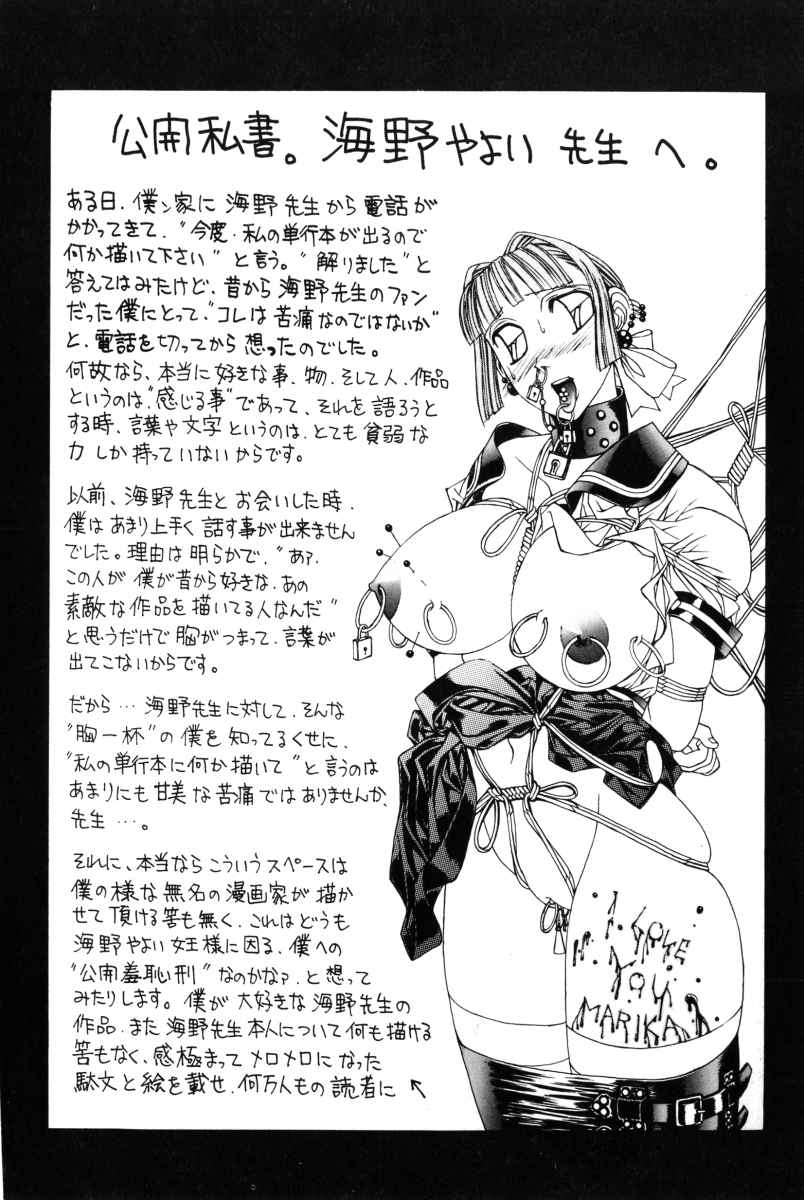 公開私書。海野やよい 先生 へ。
ある日、僕ン家に 海野先生から電話が
かかってきて、“今度、私の単行本が出るので
何か描いて下さい” と言う。“解りました”と
答えてはみたけど、昔から海野先生のファン
だった僕にとって、“コレは苦痛なのではないか”
と、電話を切ってから想ったのでした。
何故なら、本当に好きな事、物、そして人、作品
というのは“感じる事”であって、それを語ろうと
する時、言葉や文字というのは、とても貧弱な
力しか持っていないからです。
以前、海野先生とお会いした時、
僕はあまり上手く話す事が出来ません
でした。理由は明らかで、“あァ、
この人が僕が昔から好きな、あの
素敵な作品を描いてる人なんだ”
と思うだけで胸がつまって、言葉が
出てこないからです。
だから… 海野先生に対して、そんな
“胸一杯”の僕を知ってるくせに、
“私の単行本に何か描いて”と言うのは
あまりにも甘美な苦痛ではありませんか、
先生…。
それに、本当ならこういうスペースは
僕の様な無名の漫画家が描か
せて頂ける筈も無く、これはどうも
海野やよい女王様に因る、僕への
“公開羞恥刑”なのかなァ、と想って
みたりします。僕が大好きな海野先生の
作品、また海野先生本人について何も描ける
筈もなく、感極まってメロメロになった
駄文と絵を載せ、何万人もの読者に ↖
I LOVE
YOU
MARIKA